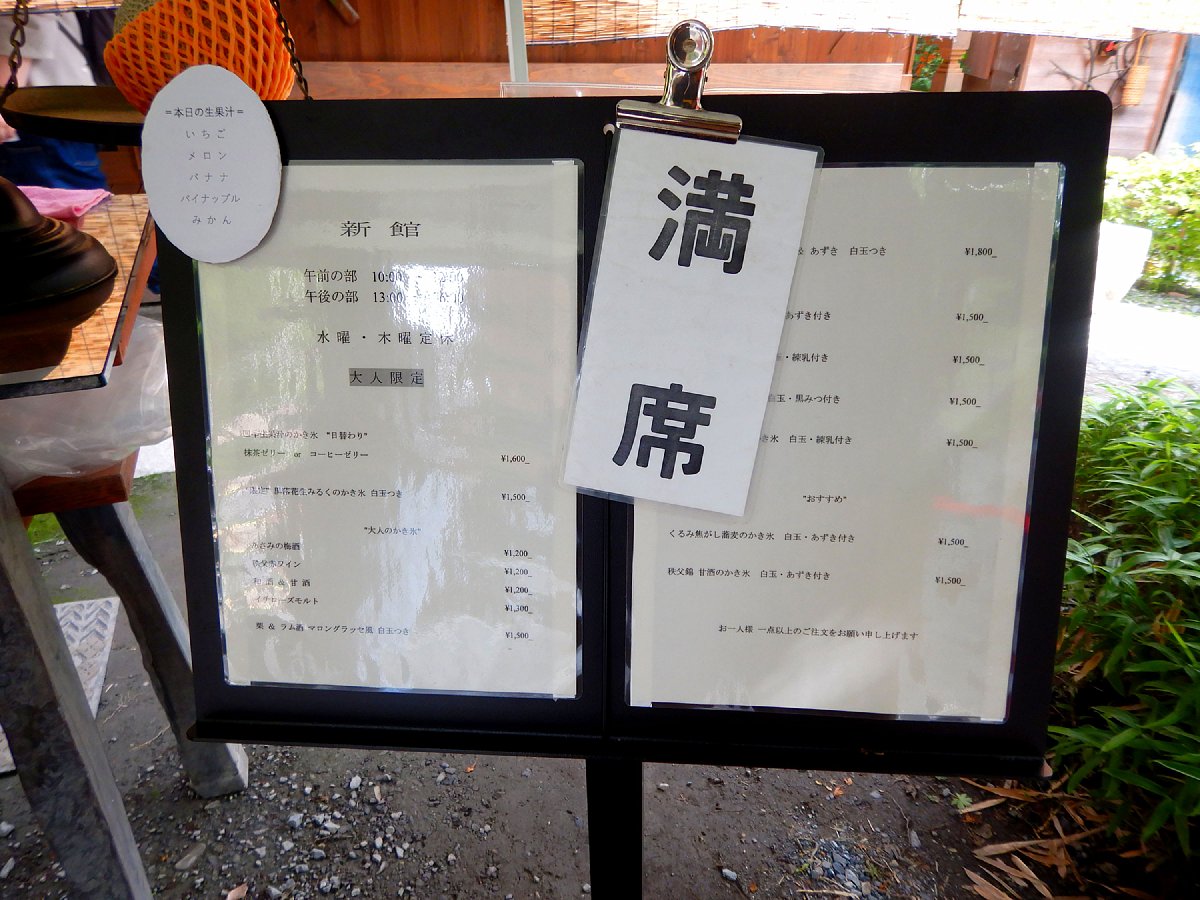 =本日の生果汁=
いちご
メロン
バナナ
パイナップル
みかん
新 館
午前の部 10:00
午後の部 13:00
水曜・木曜定休
大人限定
のかき氷 "日替わり"
抹茶ゼリー or コーヒーゼリー ¥1,600_
落花生みるくのかき氷 白玉つき ¥1,500_
"大人のかき氷"
の梅酒 ¥1,200_
秩父赤ワイン ¥1,200_
& 甘酒 ¥1,200_
イチローズモルト ¥1,300_
栗 & ラム酒 マロングラッセ風 白玉つき ¥1,500_
満席
& あずき 白玉つき ¥1,800_
あずき付き ¥1,500_
・練乳付き ¥1,500_
白玉・黒みつ付き ¥1,500_
氷 白玉・練乳付き ¥1,500_
"おすすめ"
くるみ焦がし蕎麦のかき氷 白玉・あずき付き ¥1,500_
秩父錦 甘酒のかき氷 白玉・あずき付き ¥1,500_
お一人様 一点以上のご注文をお願い申し上げます